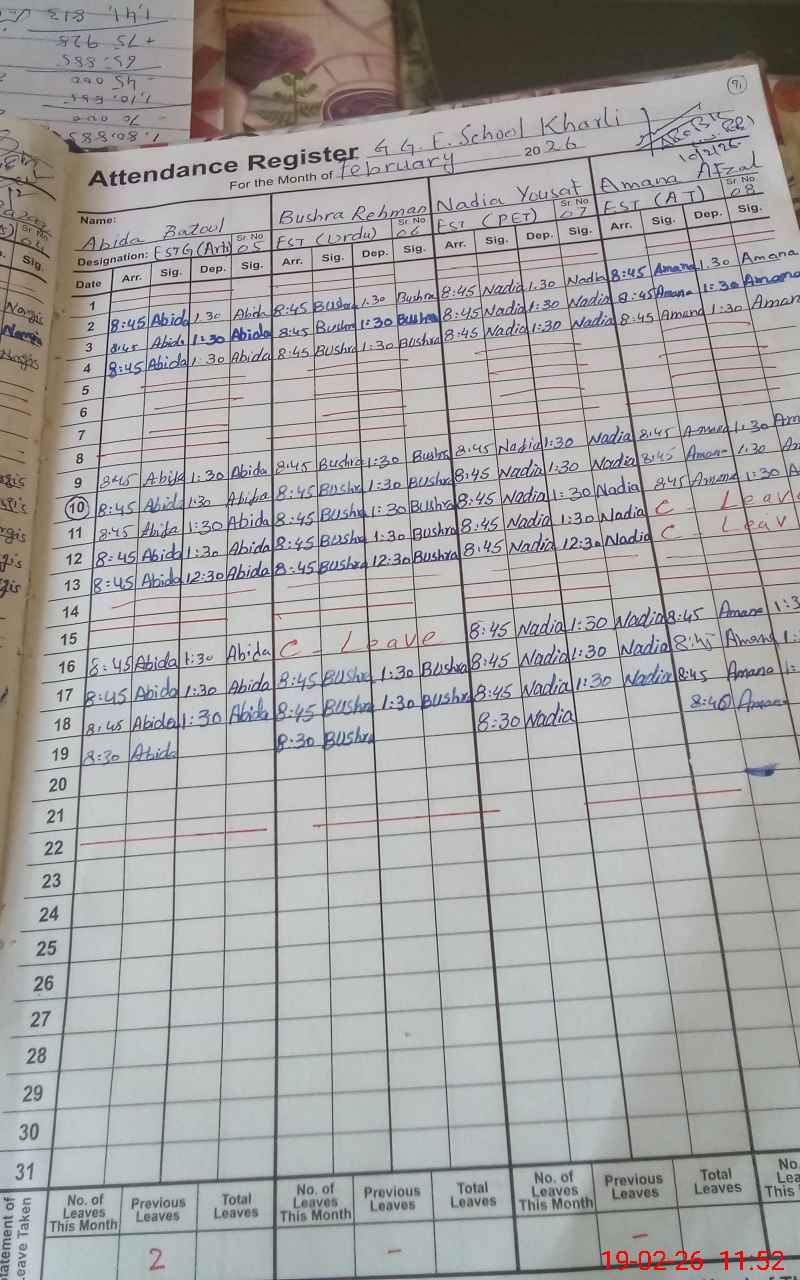 Attendance Register G G. E. School Kharli
For the Month of February 2026
10/2/26
Name: Abida Batool Bushra Rehman Nadia Yousaf Amana Afzal
Designation: EST G (Arts) Sr. No 05 EST (Urdu) Sr. No 06 EST (PET) Sr. No 07 EST (AT) Sr. No 08
Date Arr. Sig. Dep. Sig. Arr. Sig. Dep. Sig. Arr. Sig. Dep. Sig. Arr. Sig. Dep. Sig.
1
2 8:45 Abida 1:30 Abida 8:45 Bushra 1:30 Bushra 8:45 Nadia 1:30 Nadia 8:45 Amana 1:30 Amana
3 8:45 Abida 1:30 Abida 8:45 Bushra 1:30 Bushra 8:45 Nadia 1:30 Nadia 8:45 Amana 1:30 Amana
4 8:45 Abida 1:30 Abida 8:45 Bushra 1:30 Bushra 8:45 Nadia 1:30 Nadia 8:45 Amana 1:30 Aman
5
6
7
8
9 8:45 Abida 1:30 Abida 8:45 Bushra 1:30 Bushra 8:45 Nadia 1:30 Nadia 8:45 Amana 1:30 Am
10 8:45 Abida 1:30 Abida 8:45 Bushra 1:30 Bushra 8:45 Nadia 1:30 Nadia 8:45 Amana 1:30 A
11 8:45 Abida 1:30 Abida 8:45 Bushra 1:30 Bushra 8:45 Nadia 1:30 Nadia 8:45 Amana 1:30 A
12 8:45 Abida 1:30 Abida 8:45 Bushra 1:30 Bushra 8:45 Nadia 1:30 Nadia C - Leave
13 8:45 Abida 12:30 Abida 8:45 Bushra 12:30 Bushra 8:45 Nadia 12:30 Nadia C - Leav
14
15
16 8:45 Abida 1:30 Abida C - Leave 8:45 Nadia 1:30 Nadia 8:45 Amana 1:3
17 8:45 Abida 1:30 Abida 8:45 Bushra 1:30 Bushra 8:45 Nadia 1:30 Nadia 8:45 Amana 1:
18 8:45 Abida 1:30 Abida 8:45 Bushra 1:30 Bushra 8:45 Nadia 1:30 Nadia 8:45 Amana 1:
19 8:30 Abida 8:30 Bushra 8:30 Nadia 8:40 Amana
20
21
22
23
24
25
26
27
28
29
30
31
Statement of Leave Taken
No. of Leaves This Month Previous Leaves Total Leaves No. of Leaves This Month Previous Leaves Total Leaves No. of Leaves This Month Previous Leaves Total Leaves No. Lea This
2 - -
19-02-26 11:52